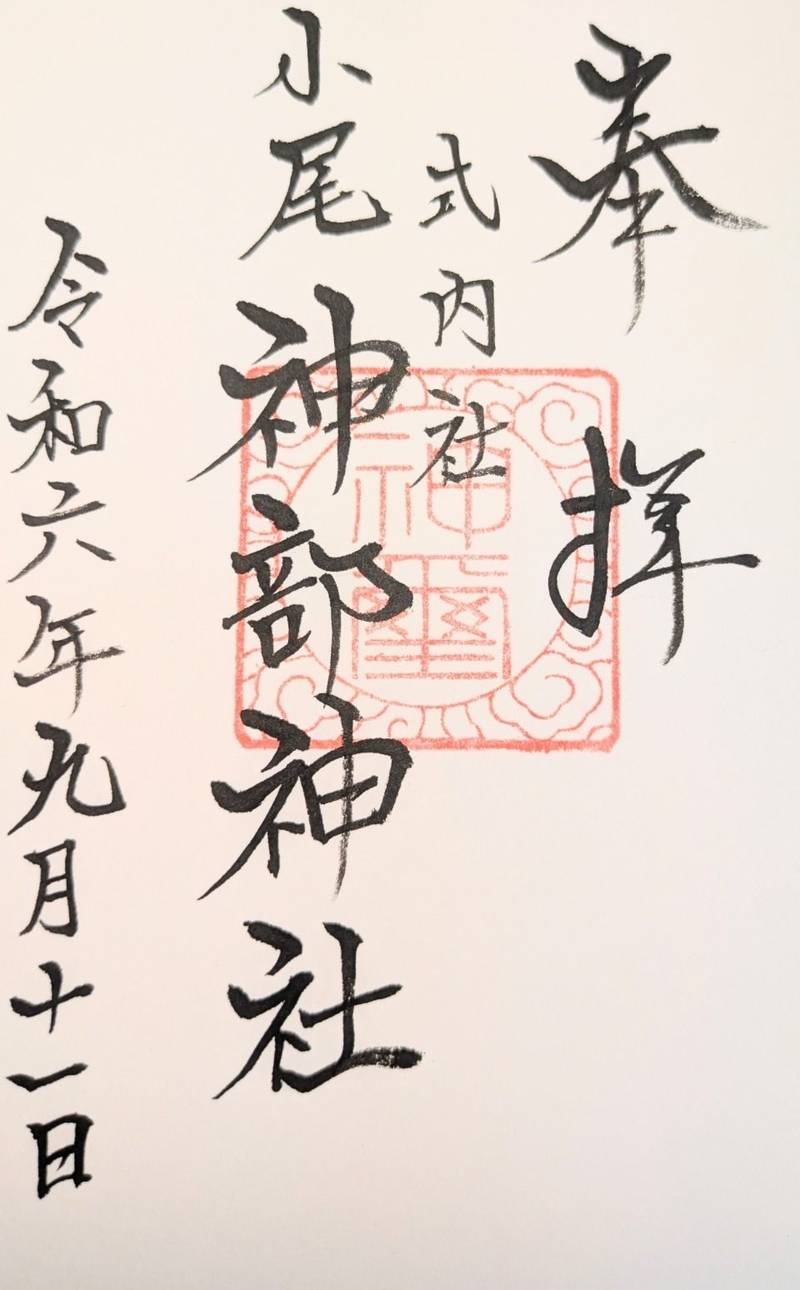 奉拝
式内社
小尾
神部神社
令和六年九月十一日
神璽